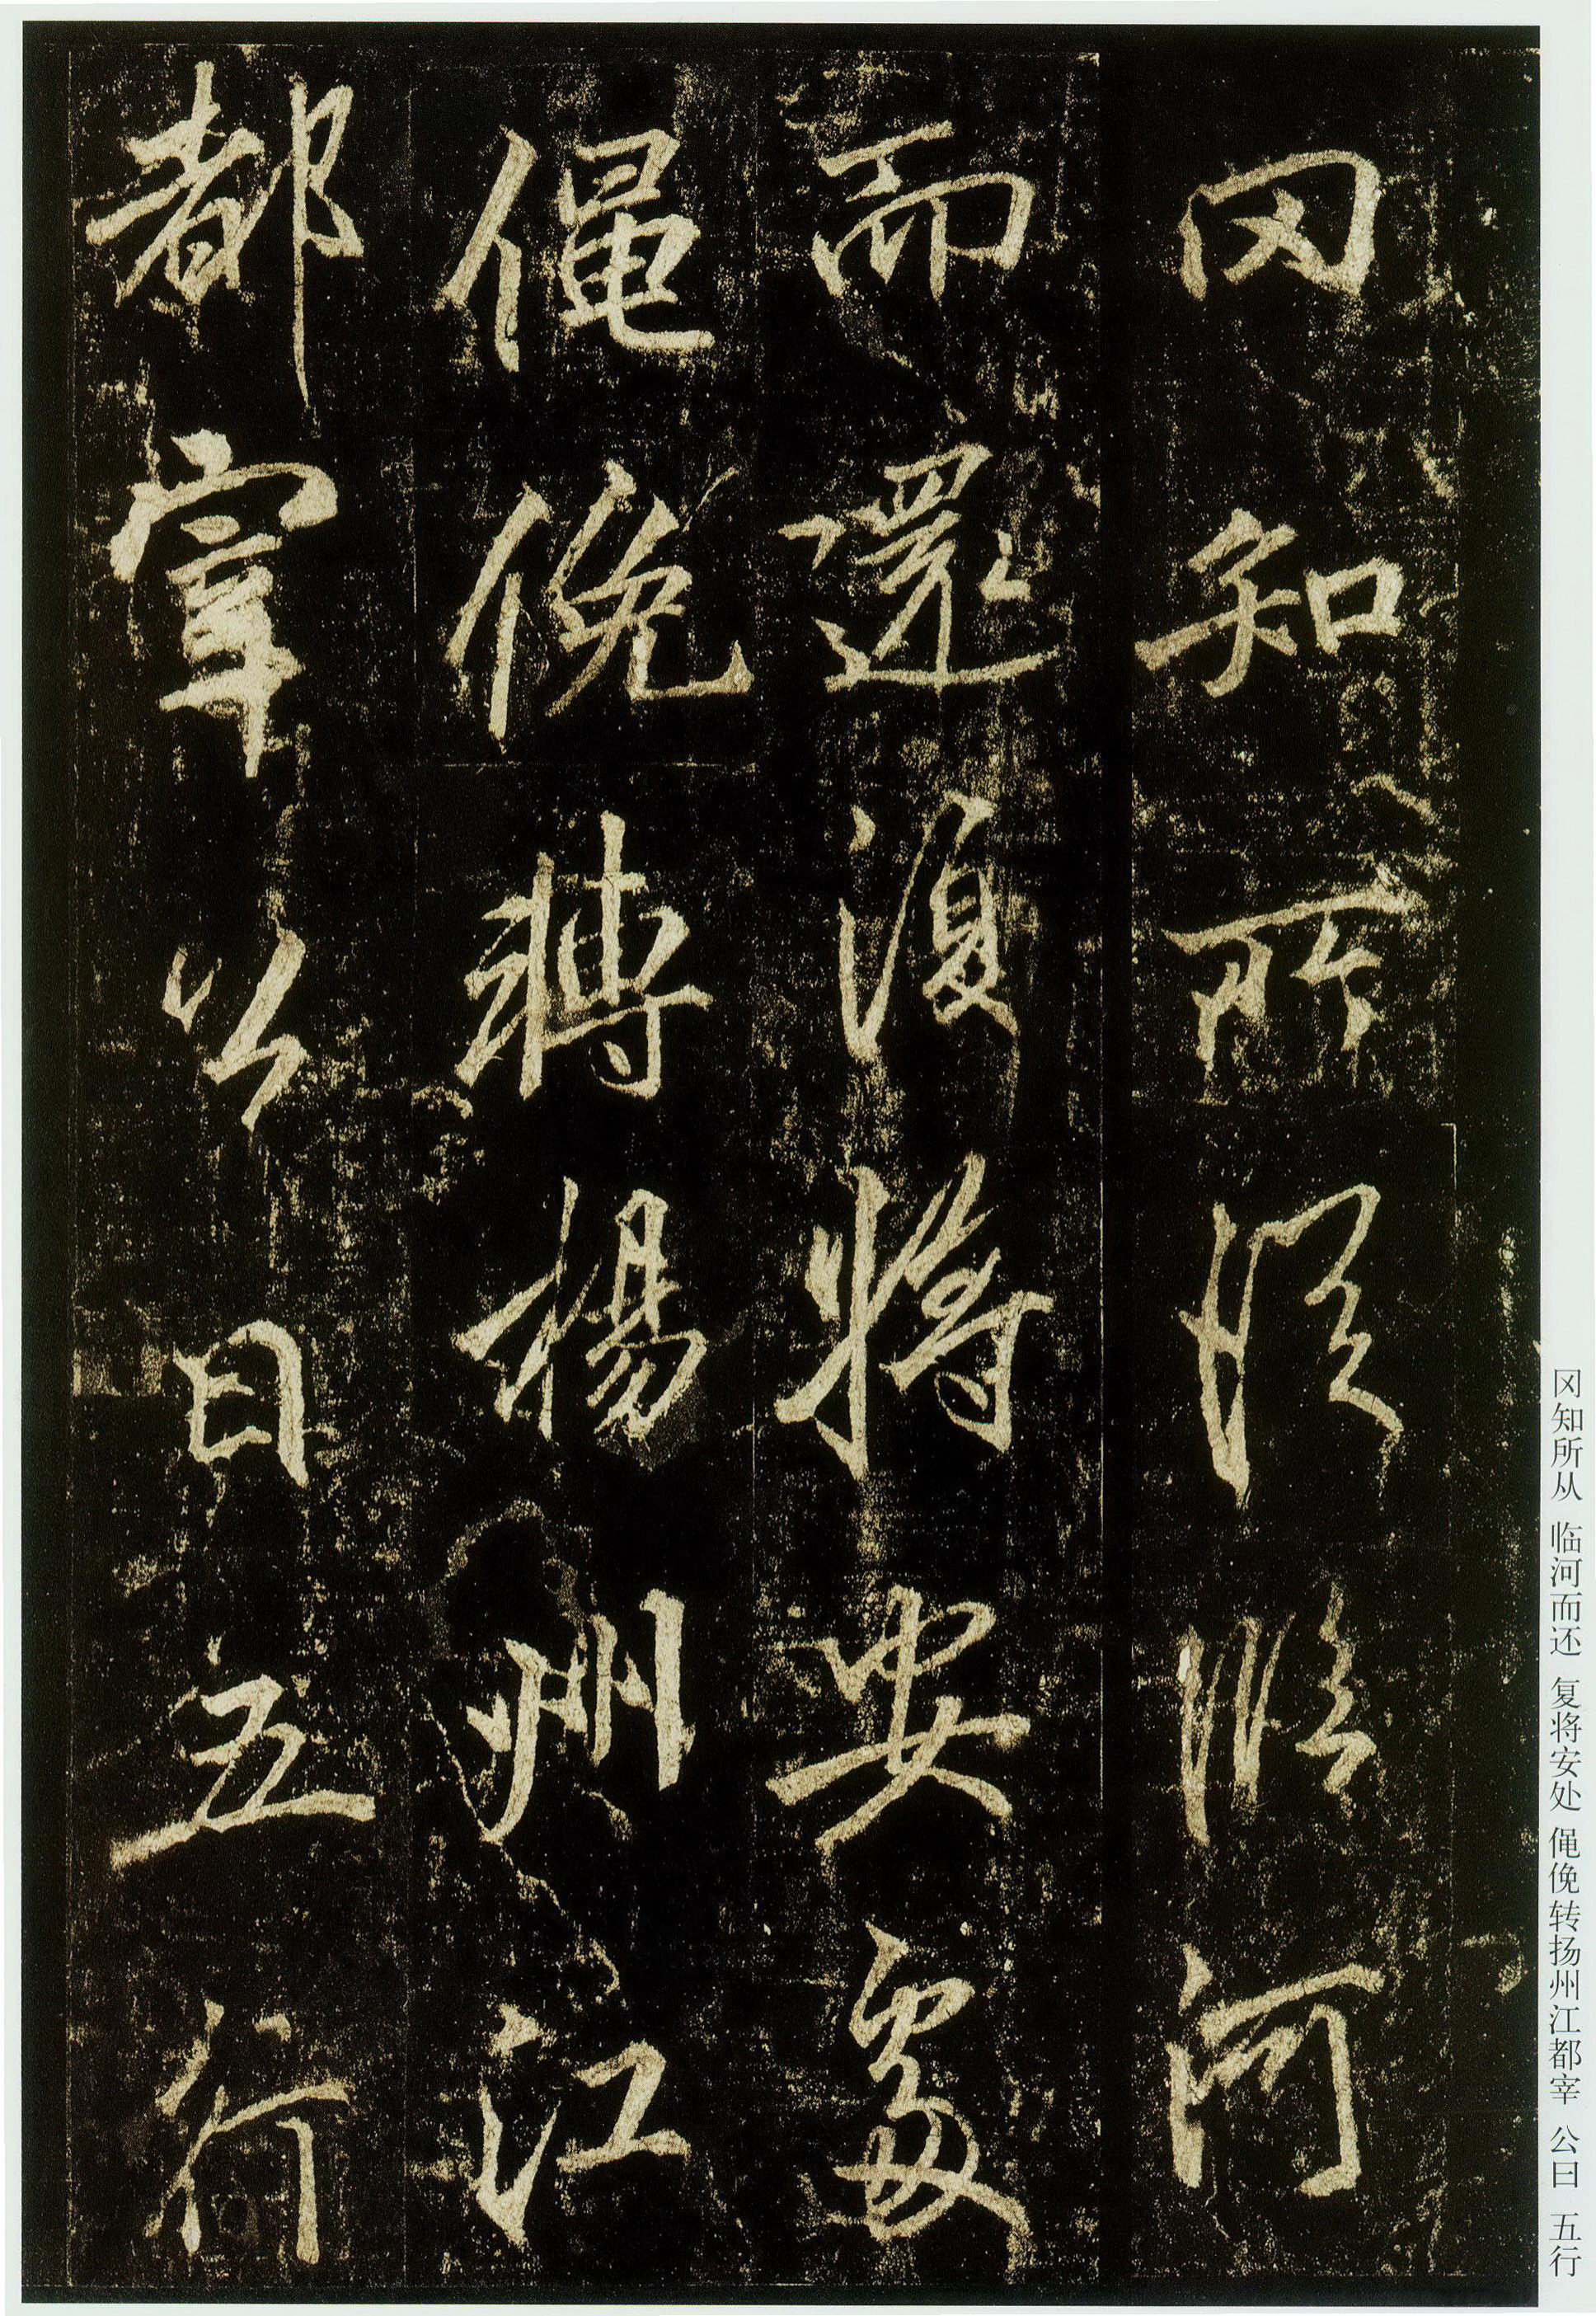 冈知所从临河
而還復将安處
僶俛轉楊州江
都宰公曰五行
冈知所从 临河而还 复将安处 僶俛转扬州江都宰 公曰 五行